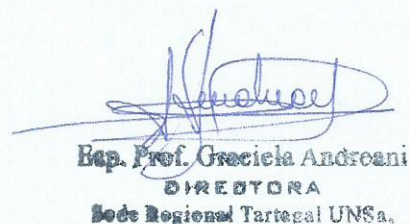 Esp. Prof. Graciela Andreani
DIRECTORA
Sede Regional Tartagal UNSa.